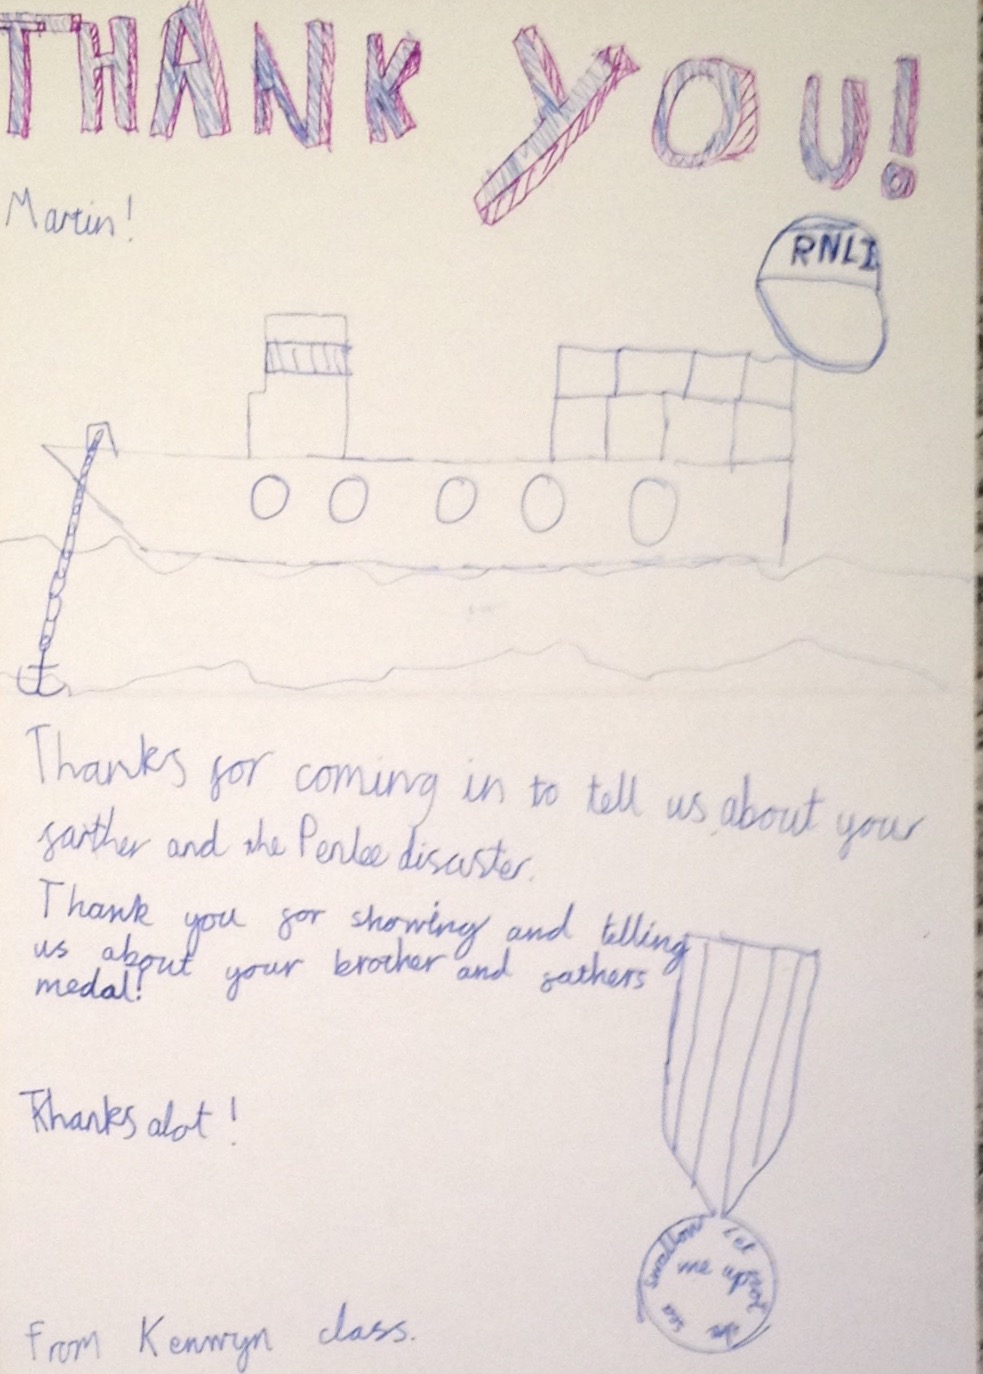 THANK YOU!
Martin!
RNLI
Thanks for coming in to tell us about your
farther and the Penlee disaster.
Thank you for showing and telling
us about your brother and fathers
medal!
Thanks alot!
Let not the sea swallow
me up
From Kenwyn class.